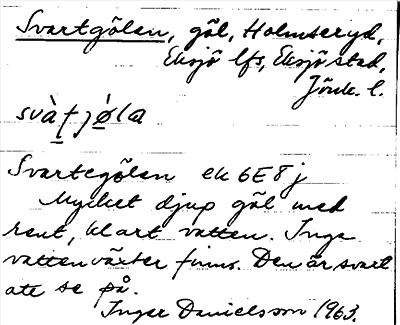 Svartgölen, göl, Holmseryd,
Eksjö lfs, Eksjö stad,
Jönk. l.
svàṭjø̀la
Svartegölen ek 6E8j
Mycket djup göl med
rent, klart vatten. Inga
vattenväxter finns. Den är svart
att se på.
Inger Danielsson 1963.